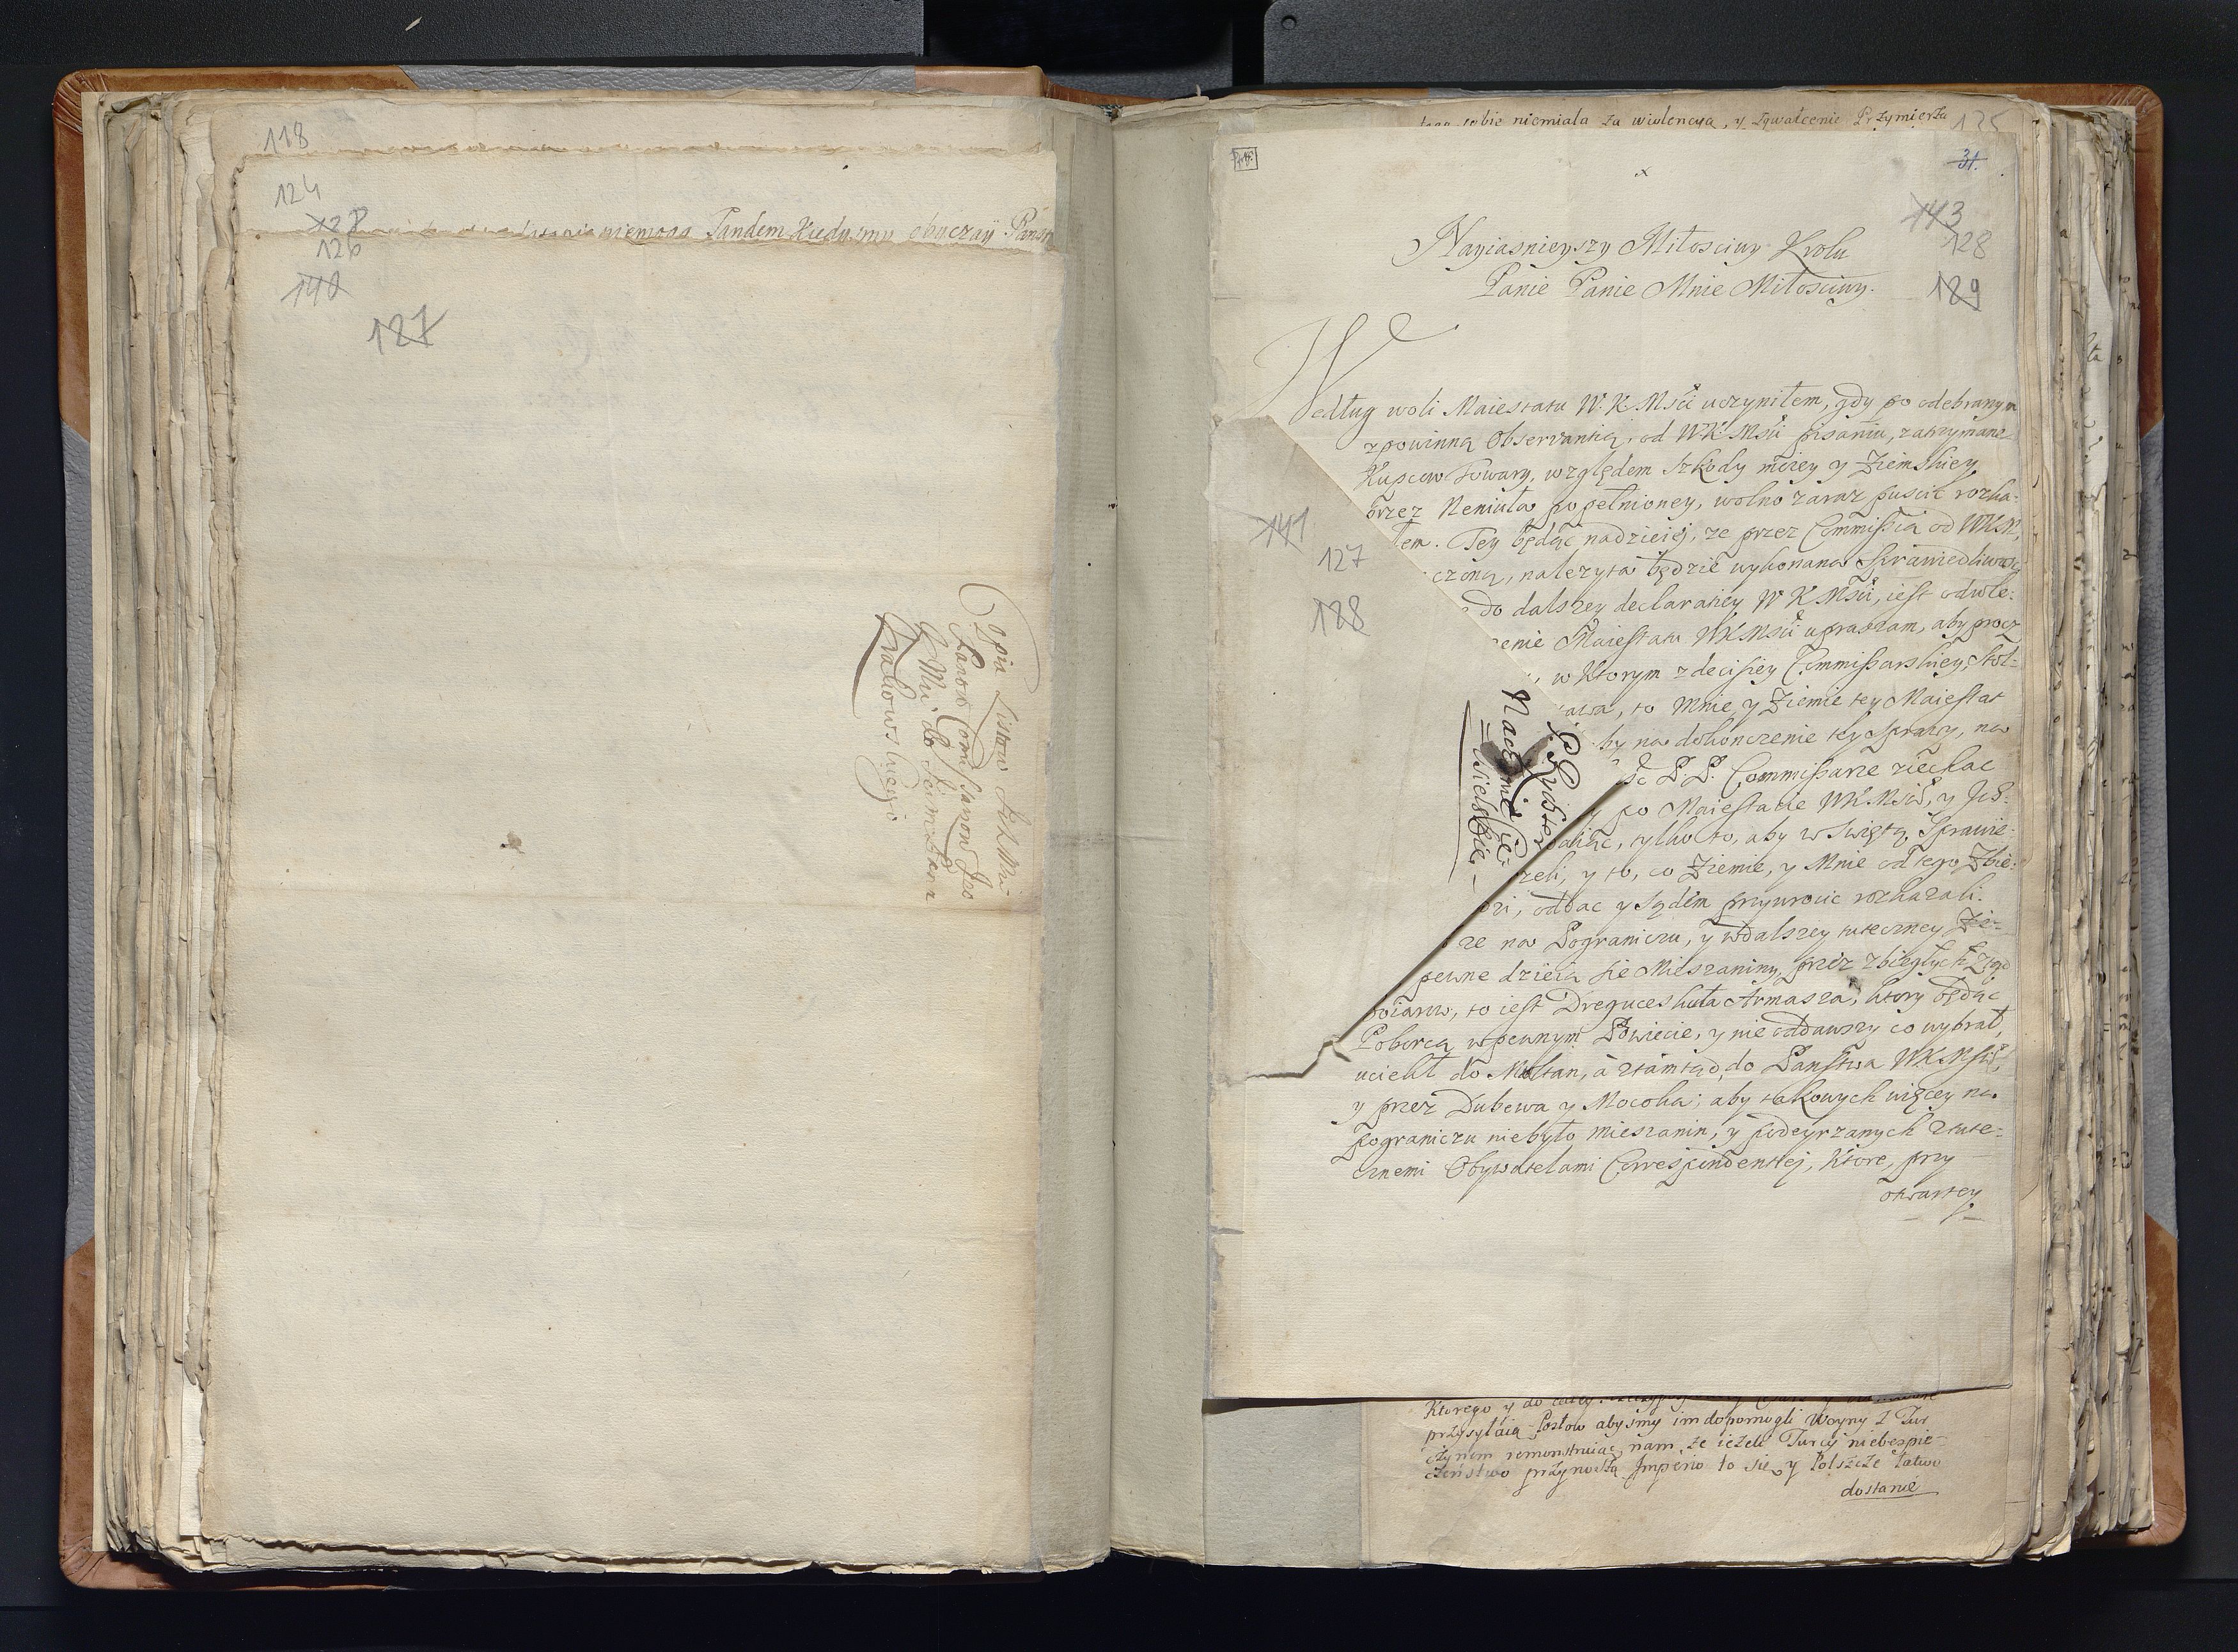 118
124
128
126
140
127
niemogą Tandem Kiedysmy obyczaÿ Pansk
Copia Listow Ich Mci
Panow Commissarzow Jeo
K Mci do
Krakowskiego
sobie niemiala za wiolencyą, y zgwałcenie Przymierza
125
31.
x
143
128
129
Nayiasnieyszy Miłosciwy Krolu
Panie Panie Mnie Miłosciwy.
Według woli Maiestatu W. K Msci uczyniłem, gdy po odebranym
z powinną Observantią, od W K Msci pisaniu, zatrzymane
Kupcow Towary, względem szkody moiey y Ziemskiey
przez Neniula popełnioney, wolno zaraz puscić rozka-
łem. Tey będąc nadzieiej, ze przez Commissią od WKM,
czoną, nalezyta będzie wykonana Sprawiedliwosc
do dalszey declaratiey W K Msci, iest odwle-
enie Maiestatu WKMsci upraszam, aby przez
, w Ktorym z decisiey Commissarskiey, Stol-
awa, to Mnie, y Ziemie tey Maiestat
by na dokonczenie tey Sprawy, na
P. P. Commissarze ziechac
y po Maiestacie WKMsci, y Jeo-
aiąc, tylko to, aby w Swiętą Sprawie-
zeli, y to, co Ziemie, y Mnie od tego Zbie-
ori, oddac y Sądem przywrocic rozkazali.
ze na Pograniczu, y w dalszey tuteczney Zie-
pewne dzieią sie Mieszaniny, przez zbiegłych
boiarow, to iest Dreguceskuła Armasza, ktory będąc
Poborcą w pewnym Powiecie, y nie oddawszy co wybrał,
uciekł do Multan, a ztamtąd, do Panstwa WKMsci,
y przez Dubewa y Mocoka; aby takowych więcey na
pograniczu niebyło mieszanin, y podeyrzanych z tute-
cznemi Obywatelami Correspondentiej, ktore, przy
otwartey
141
127
128
Ktorego y do
przysyłaią Posłow abysmy im dopomogli Woyny z Tur
czynem remonstruiąc nam, ze iezeli Turcy niebespie-
czenstwo przynoszą Imperio to sie y Polszcze łatwo
dostanie